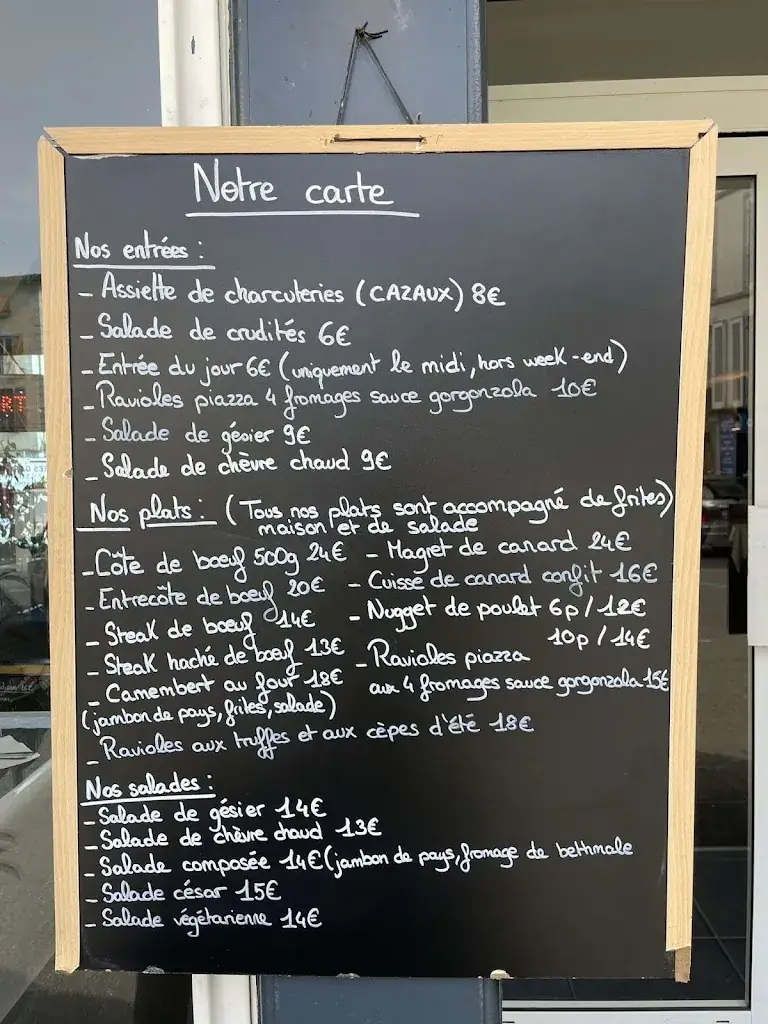 Notre carte
Nos entrées :
- Assiette de charcuteries (CAZAUX) 8€
- Salade de crudités 6€
- Entrée du jour 6€ (uniquement le midi, hors week-end)
- Ravioles piazza 4 fromages sauce gorgonzola 10€
- Salade de gésier 9€
- Salade de chèvre chaud 9€
Nos plats : (Tous nos plats sont accompagné de frites)
maison et de salade
- Côte de boeuf 500g 24€
- Entrecôte de boeuf 20€
- Steak de boeuf 14€
- Steak haché de boeuf 13€
- Camembert au four 18€
(jambon de pays, frites, salade)
- Magret de canard 24€
- Cuisse de canard confit 16€
- Nugget de poulet 6p / 12€
10p / 14€
- Ravioles piazza
aux 4 fromages sauce gorgonzola 15€
- Ravioles aux truffes et aux cèpes d'été 18€
Nos salades :
- Salade de gésier 14€
- Salade de chèvre chaud 13€
- Salade composée 14€ (jambon de pays, fromage de bethmale
- Salade césar 15€
- Salade végétarienne 14€
RT